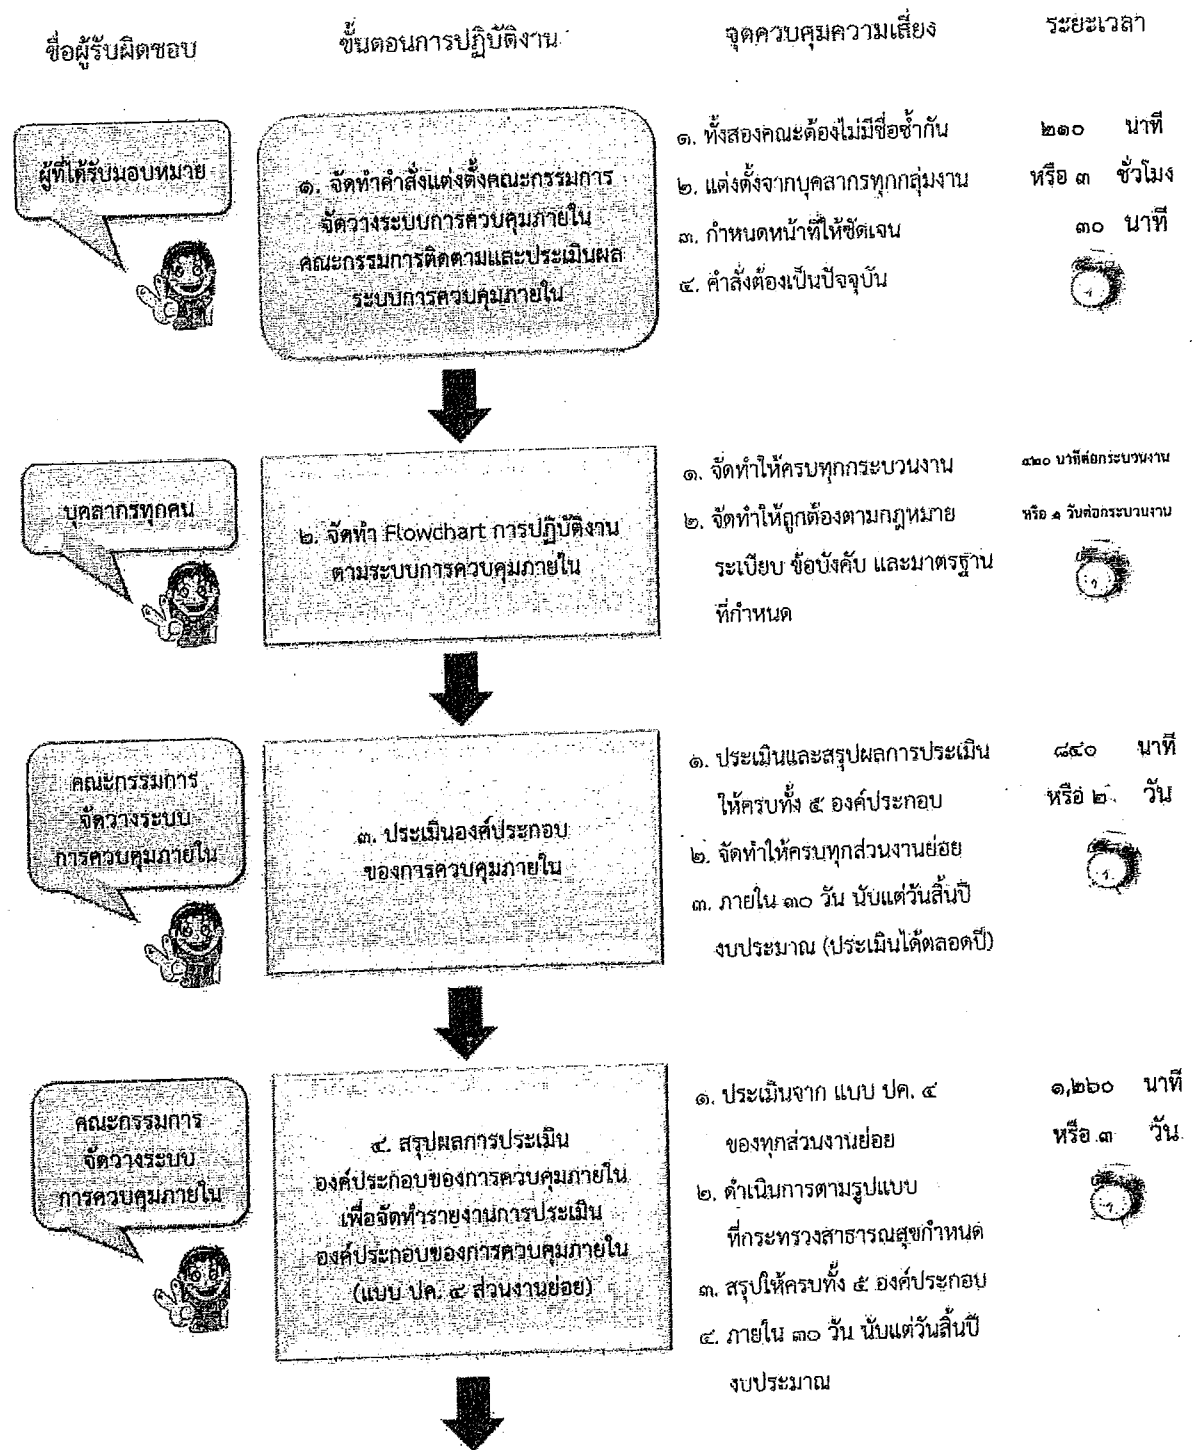 ชื่อผู้รับผิดชอบ
ขั้นตอนการปฏิบัติงาน
จุดควบคุมความเสี่ยง
ระยะเวลา
ผู้ที่ได้รับมอบหมาย
๑. จัดทำคำสั่งแต่งตั้งคณะกรรมการ
จัดวางระบบการควบคุมภายใน
คณะกรรมการติดตามและประเมินผล
ระบบการควบคุมภายใน
๑. ทั้งสองคณะต้องไม่มีชื่อซ้ำกัน
๒. แต่งตั้งจากบุคลากรทุกกลุ่มงาน
๓. กำหนดหน้าที่ให้ชัดเจน
๔. คำสั่งต้องเป็นปัจจุบัน
๒๑๐ นาที
หรือ ๓ ชั่วโมง
๓๐ นาที
บุคลากรทุกคน
๒. จัดทำ Flowchart การปฏิบัติงาน
ตามระบบการควบคุมภายใน
๑. จัดทำให้ครบทุกกระบวนงาน
๒. จัดทำให้ถูกต้องตามกฎหมาย
ระเบียบ ข้อบังคับ และมาตรฐาน
ที่กำหนด
๔๒๐ นาทีต่อกระบวนงาน
หรือ ๑ วันต่อกระบวนงาน
คณะกรรมการ
จัดวางระบบ
การควบคุมภายใน
๓. ประเมินองค์ประกอบ
ของการควบคุมภายใน
๑. ประเมินและสรุปผลการประเมิน
ให้ครบทั้ง ๕ องค์ประกอบ
๒. จัดทำให้ครบทุกส่วนงานย่อย
๓. ภายใน ๓๐ วัน นับแต่วันสิ้นปี
งบประมาณ (ประเมินได้ตลอดปี)
๘๔๐ นาที
หรือ ๒ วัน
คณะกรรมการ
จัดวางระบบ
การควบคุมภายใน
๔. สรุปผลการประเมิน
องค์ประกอบของการควบคุมภายใน
เพื่อจัดทำรายงานการประเมิน
องค์ประกอบของการควบคุมภายใน
(แบบ ปค. ๔ ส่วนงานย่อย)
๑. ประเมินจาก แบบ ปค. ๔
ของทุกส่วนงานย่อย
๒. ดำเนินการตามรูปแบบ
ที่กระทรวงสาธารณสุขกำหนด
๓. สรุปให้ครบทั้ง ๕ องค์ประกอบ
๔. ภายใน ๓๐ วัน นับแต่วันสิ้นปี
งบประมาณ
๑,๒๖๐ นาที
หรือ ๓ วัน